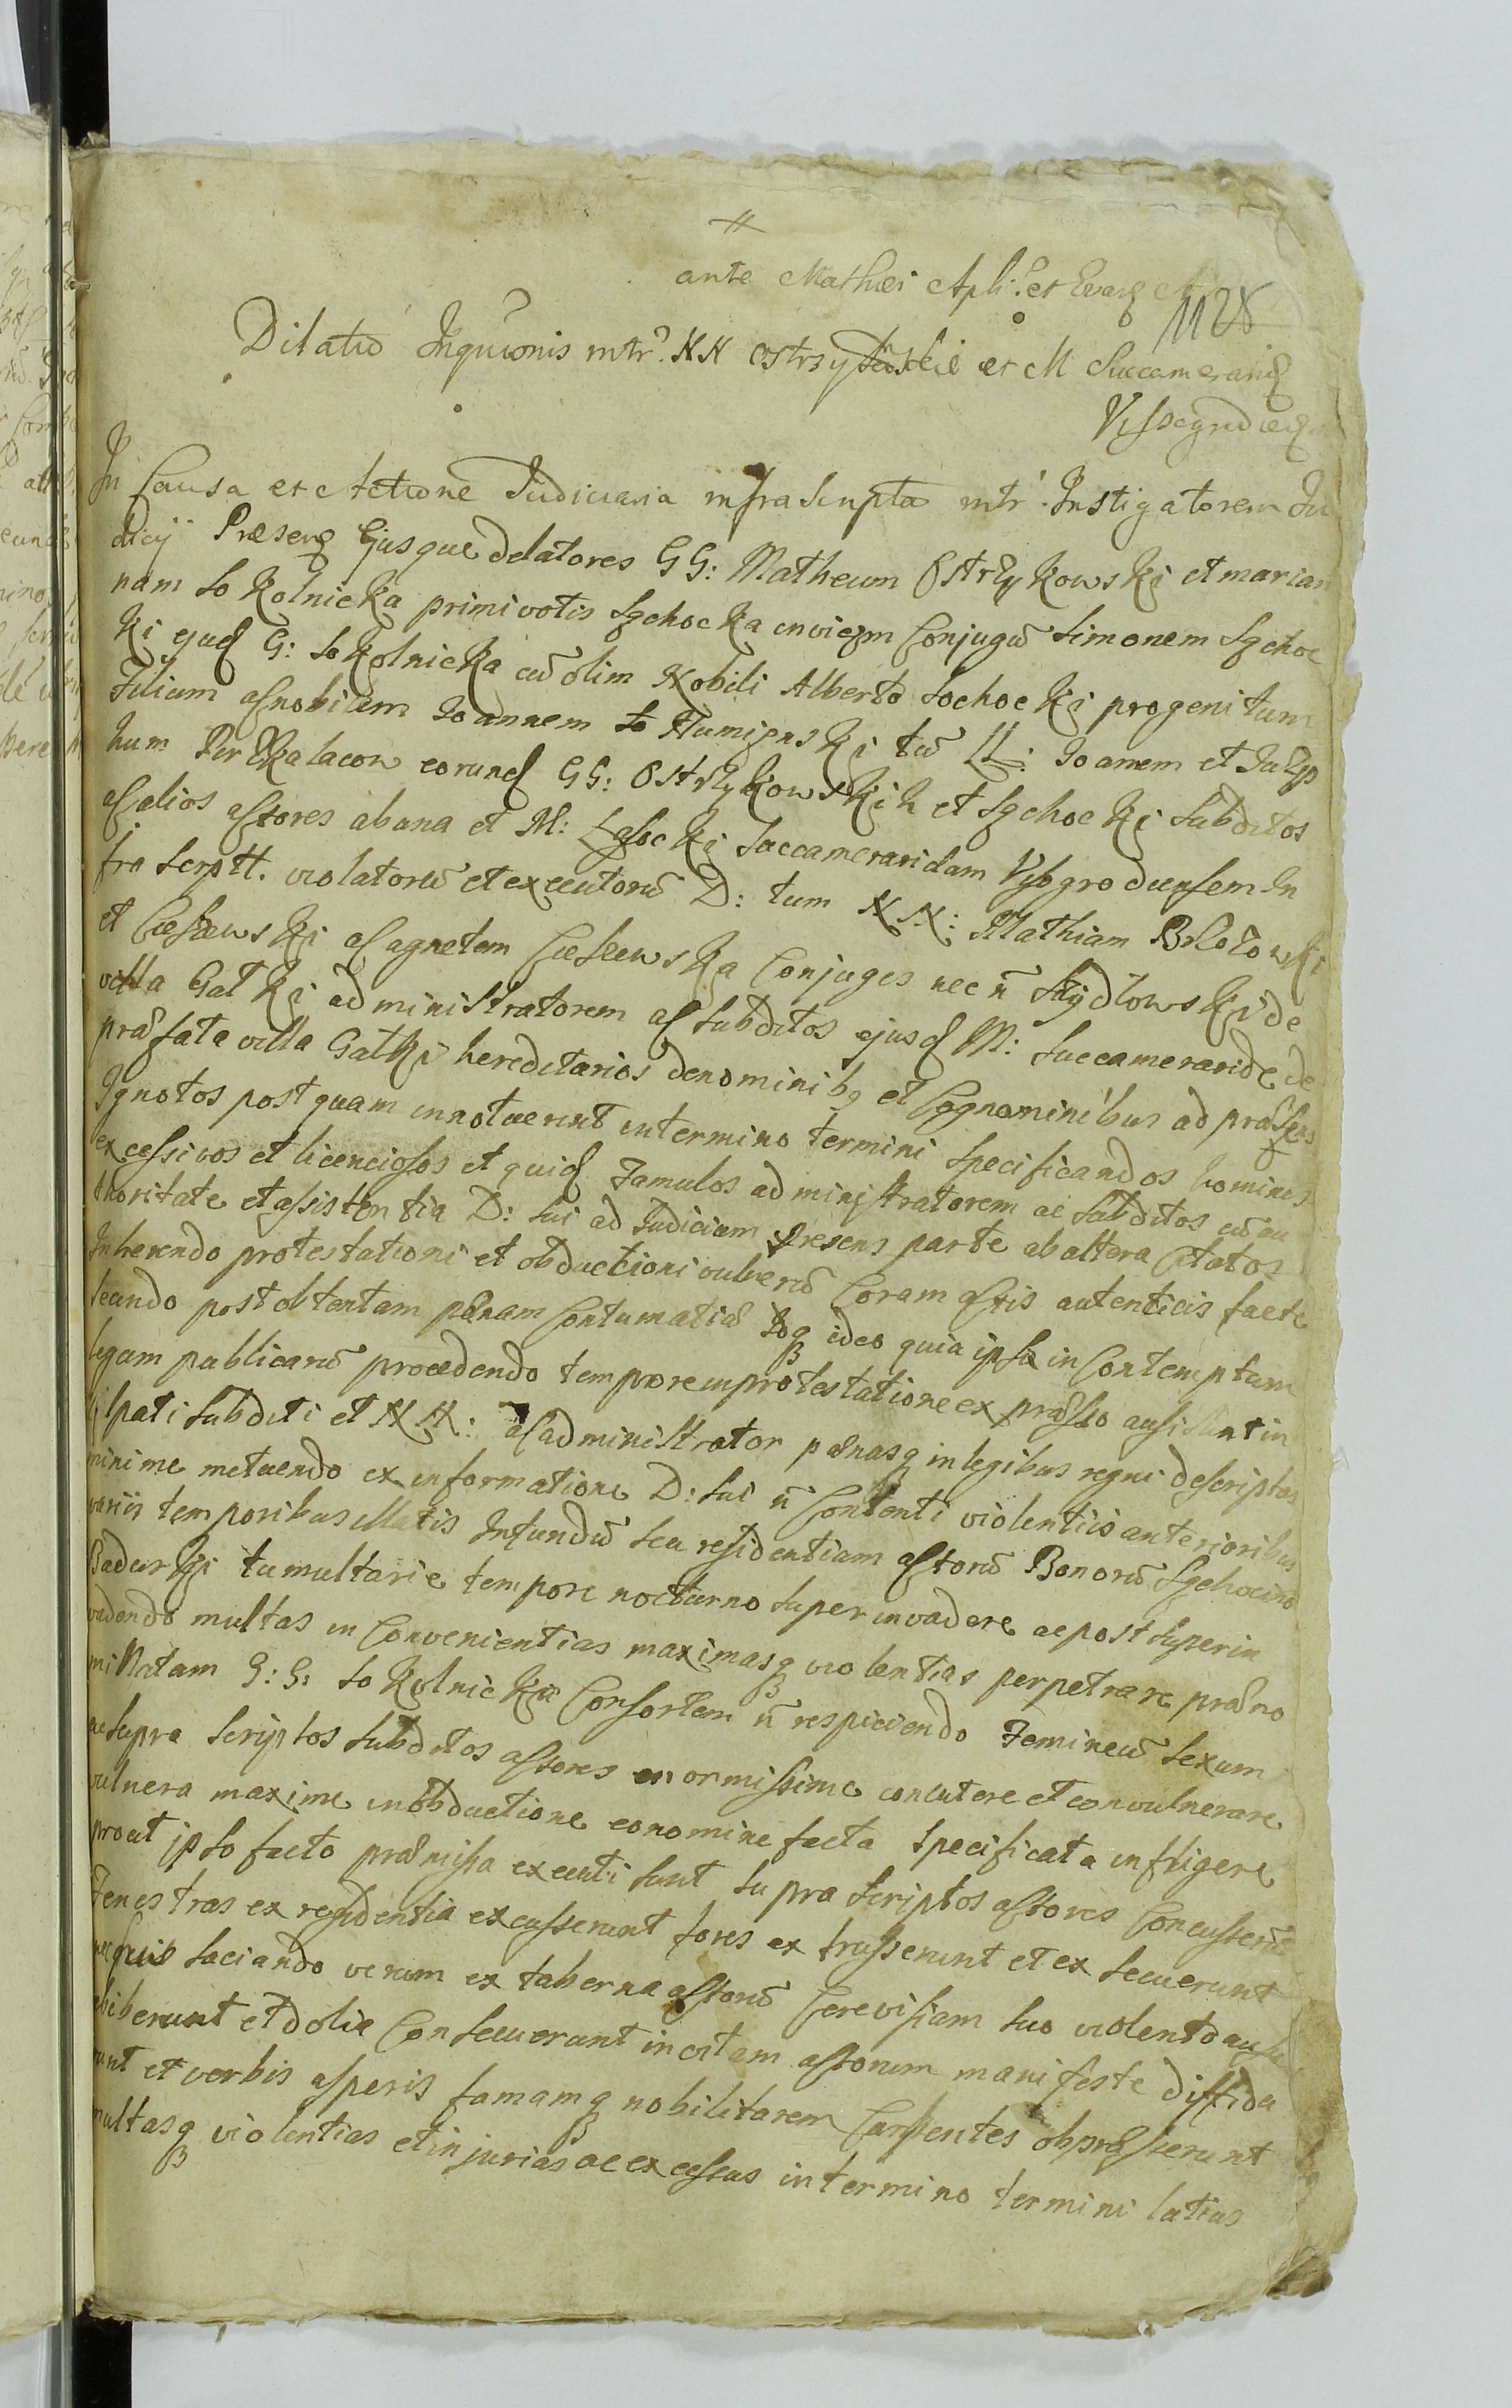 ante Mathæi Apli: et Evang
1128
Dilatio Inquionis intr: NN Ostrzykowskie et M Succamerarid
Vissegrodien
In Causa et Actione Judiciaria infrascripta intr. Instigatorem Ju
dicij Præsens Ejusque delatores GG: Matheum Ostrzykowski et marian
nam Sokolnicka primi votis Sochocka invicem Conjuges Simonem Sochoc
ki ejusd G: Sokolnicka cū olim Nobili Alberto Sochocki progenitum
Filium ac nobilem Joannem tū LL: Joannem et
eorund GG: Ostrzykowskich et Sochocki Subditos
ac alios actores ab una et M: Lasocki Succameraridam Vysogrodiensem In
fra Scrptt. violatorū et executorū D: tum NN: Mathiam
et Ciesłewski ac agnetem Ciesłewska Conjuges nec n̄ Szydłowski de
villa Gałki administratorem ac Subditos ejusd M: Succameraridæ de
præfata villa Gałki hereditarios de nominibq et Cognominibus ad præsens
Ignotos postquam innotuerint in termino termini Specificandos homines
excessivos et licenciosos et quid Famulos administratorem ac Subditos cū au
thoritate et assistentia D: sui ad Judicium Presens parte ab altera Citatos
Inherendo protestationi et obductioni vulnerū Coram actis autenticis factæ
secundo post obtentam pænam Contumatiæ ideo quia ipsi in Contemptum
legum publicarū procedendo tempore in protestatione expræsso ausi sunt in
culpati Subditi et NN: ac administrator pænasq in legibus regni descriptas
minime metuendo ex informatione D: sui n̄ Contenti violentiis anterioribus
variis temporibus illatis In fundū seu residentiam actorū Bonorū Sochocino
Badurki tumultarie tempore nocturno super invadere ac post superin
vadendo multas in Convenientias maximasq violentias perpetrare præno
minatam G: G: Sokolnicka Consortem n̄ respiciendo Femineū sexum
ac supra Scriptos Subditos actores enormissime concutere et convulnerare
vulnera maxime in obductione eo nomine facta specificata infligere
prout ipso facto præmissa executi sunt supra scriptos actores Concusserū
Fenestras ex residentia excusserunt fores ex trusserunt et ex secuerunt
nec his saciando verum ex taberna actorū Cerevisiam suo violento ausu
ebiberunt et dolia Consecuerunt in vitam actorum manifeste diffida
runt et verbis asperis famamq nobilitarem Carpentes obpræsserunt
multasq violentias et injurias ac excessus in termino termini latius